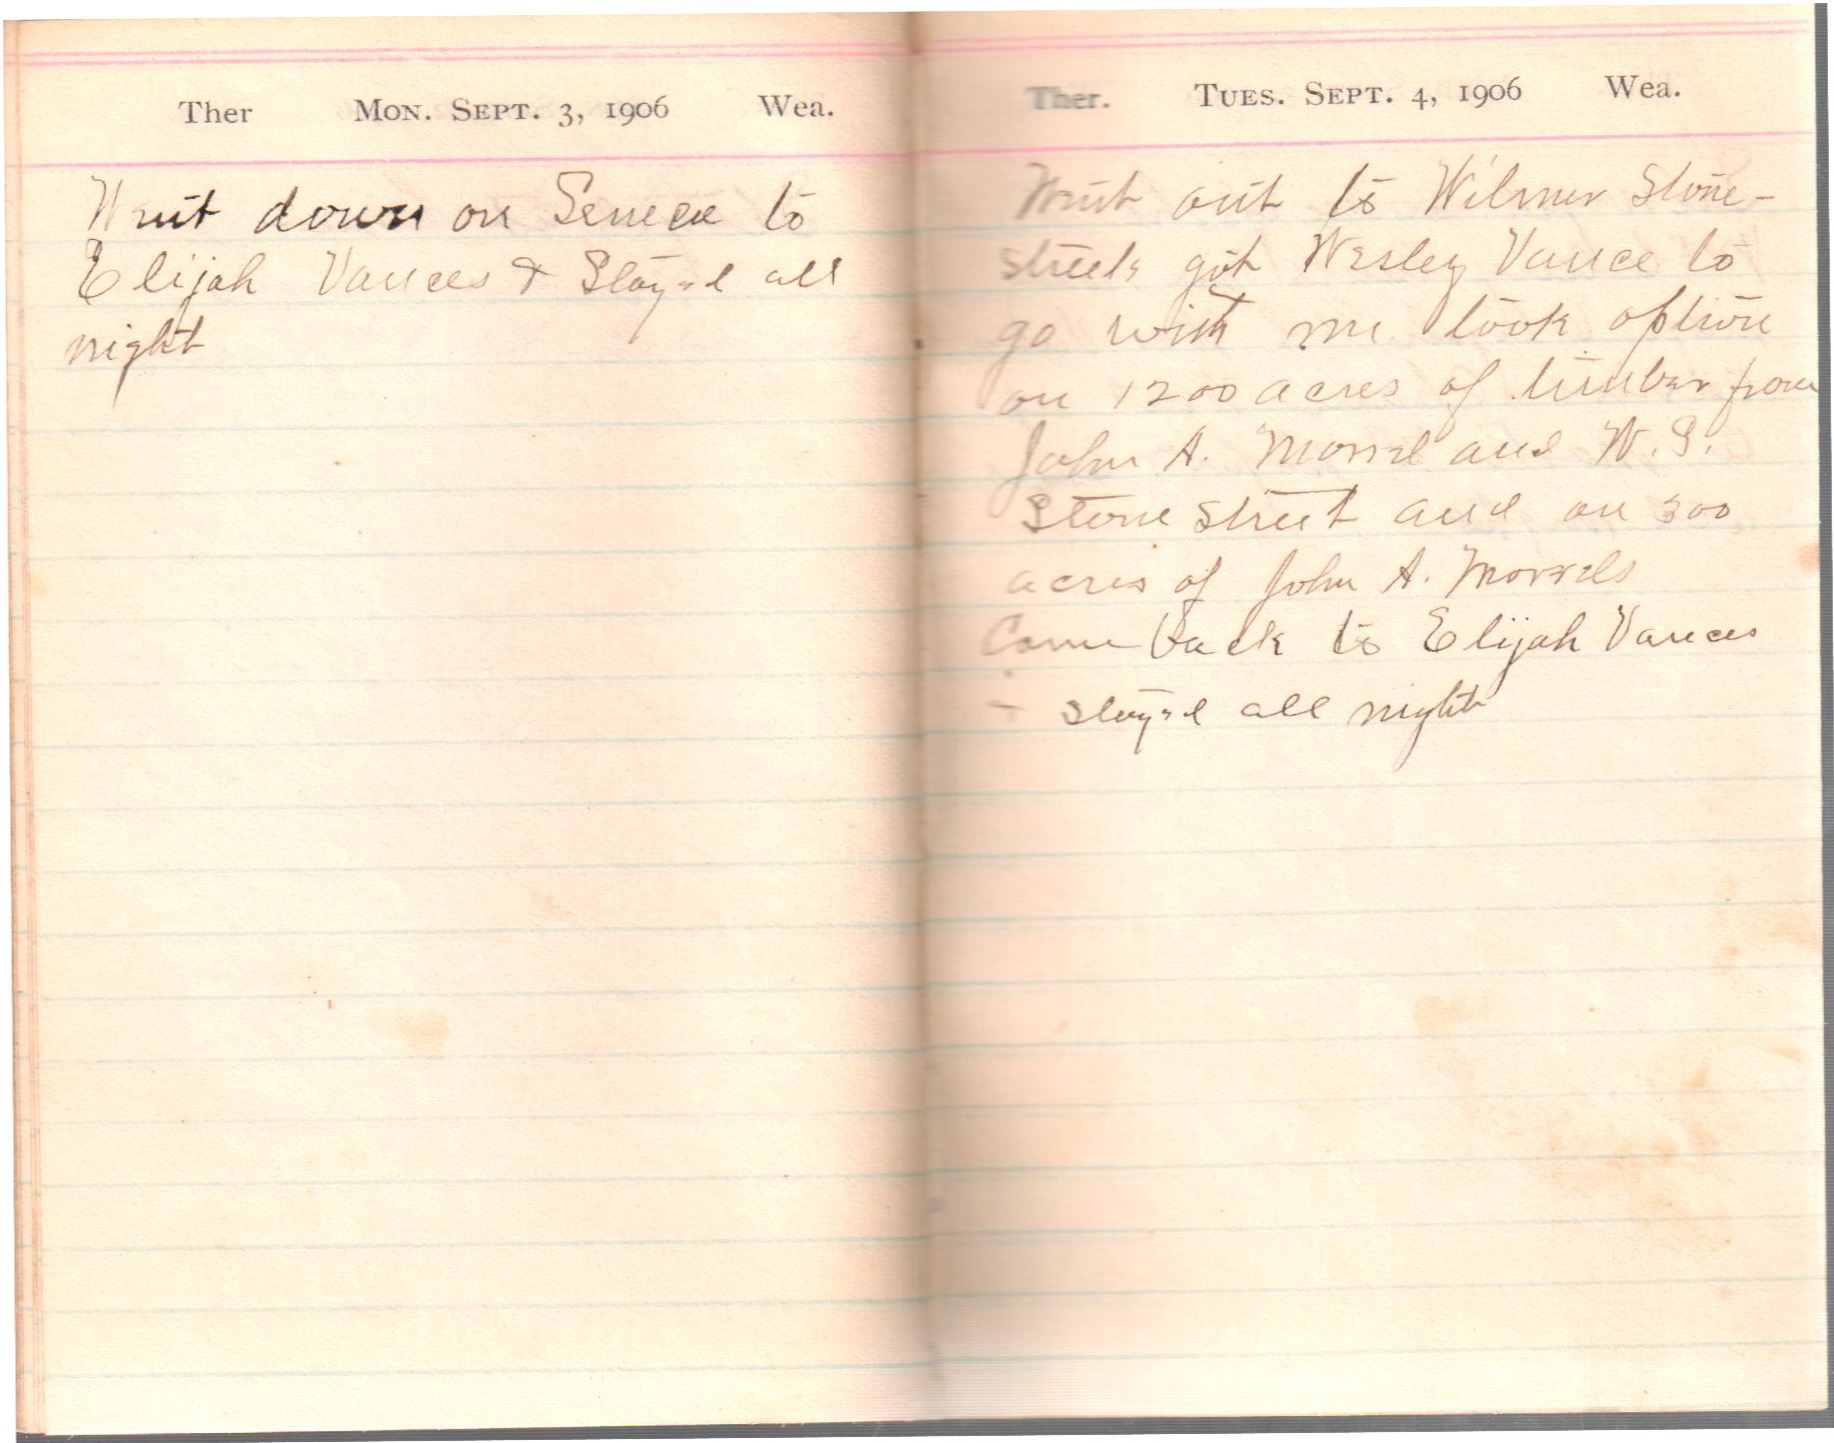 Ther Mon. Sept. 3, 1906 Wea.
Went down on Seneca to
Elijah Vances & Stayed all
night
Ther. Tues. Sept. 4, 1906 Wea.
Went out to Wilmer Stone-
streets got Wesley Vance to
go with me took option
on 1200 acres of timber from
John A. Morrel and W. S.
Stone Street and on 300
acres of John A. Morrels
Came back to Elijah Vances
+ stayed all night